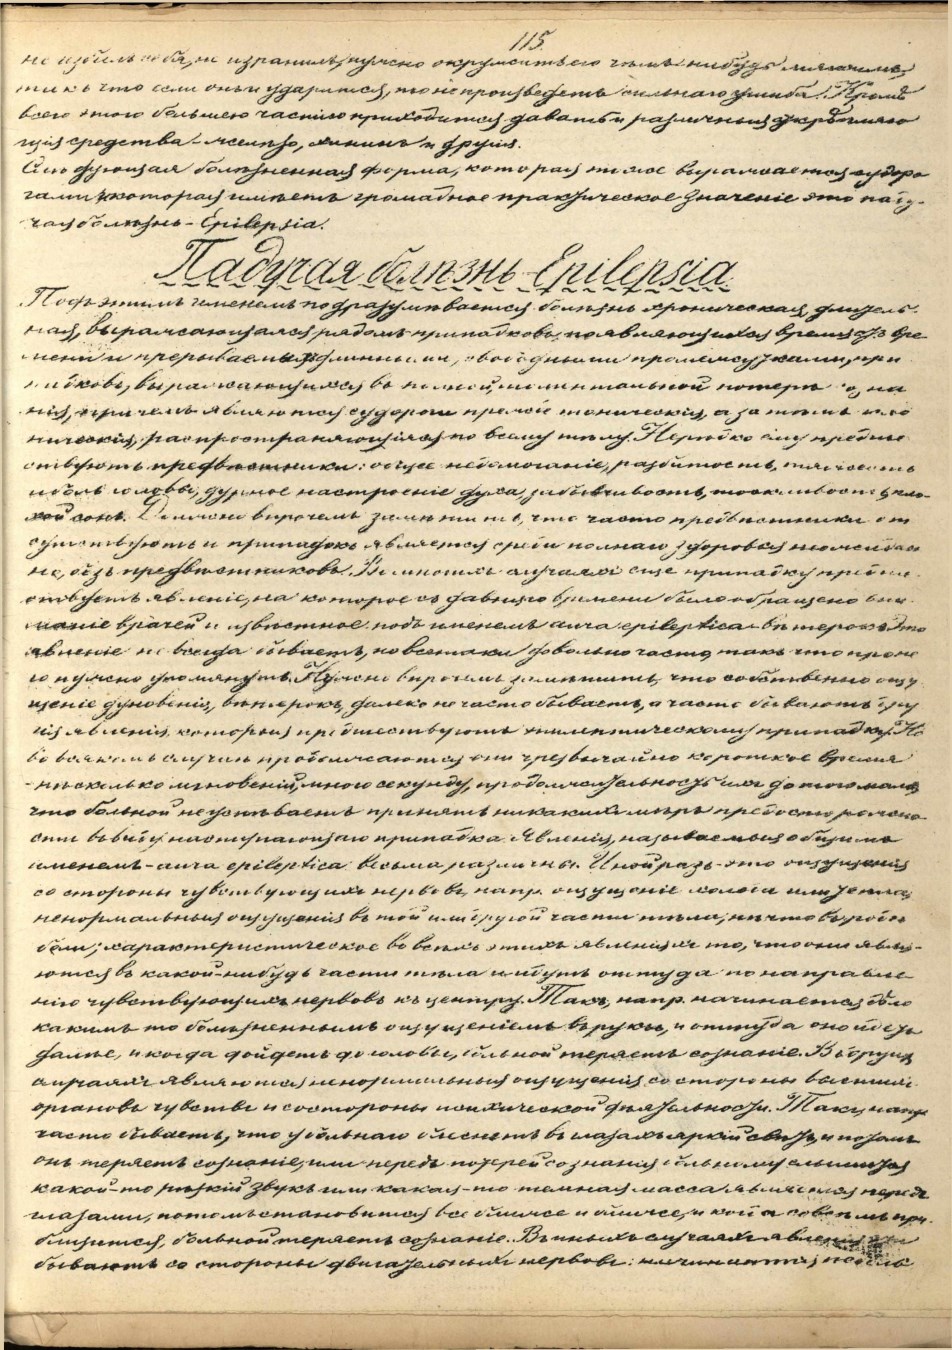 115.
не избилъ себя, не изранилъ, нужно окружить его чѣмъ нибудь мягкимъ,
такъ что если онъ и ударится, то не произведетъ сильнаго ушиба. Кромѣ
всего этого большею частію приходится давать и различныя укрѣпляю
щія средства – желѣзо, хининъ и другія.
Слѣдующая болѣзненная форма, которая также выражается судоро
гами и которая имѣетъ громадное практическое значеніе это паду-
чая болѣзнь – Epilepsia.
Падучая болѣзнь Epilepsia.
Подъ этимъ именемъ подразумѣвается болѣзнь хроническая, длитель
ная, выражающаяся рядомъ припадковъ, появляющихся время отъ вре
мени и прерываемыхъ длинными, свободными промежутками, при
падковъ, выражающихся въ полной, моментальной потерѣ созна
нія, причемъ являются судороги прежде тоническія, а затѣмъ кло
ническія, распространяющіяся по всему тѣлу. Нерѣдко ему предше
ствуютъ предвѣстники: общее недомоганіе, разбитость, тяжесть
и боль головы, дурное настроеніе духа, забывчивость, тоскливость, пло-
хой сонъ. Должно впрочемъ замѣтить, что часто предвѣстники от
сутствуютъ и припадокъ является среди полнаго здоровья неожидан
но, безъ предвѣстниковъ. Въ многихъ случаяхъ еще припадку предше
ствуетъ явленіе, на которое съ давняго времени было обращено вни
маніе врачей и извѣстное подъ именемъ aura epileptica – вѣтерокъ. Это
явленіе не всегда бываетъ, но всетаки довольно часто, такъ что про не
го нужно упомянуть. Нужно впрочемъ замѣтить, что собственно ощу
щеніе дуновенія, вѣтерокъ, далеко не часто бываетъ, а часто бываютъ дру
гія явленія, которыя предшествуютъ эпилептическому припадку. Но
во всякомъ случаѣ продолжаются они чрезвычайно короткое время
– нѣсколько мгновеній, много секунду, продолжительность ихъ до того мала,
что больной не успѣваетъ принять никакихъ мѣръ предосторожно
сти въ виду наступающаго припадка. Явленія, называемыя общимъ
именемъ – aura epileptica весьма различны. Иной разъ – это ощущенія
со стороны чувствующихъ нервовъ, напр. ощущеніе холода или тепла,
ненормальныя ощущенія въ той или другой части тѣла, нѣчто въ родѣ
боли; характеристическое во всѣхъ этихъ явленіяхъ то, что они явля-
ются въ какой-нибудь части тѣла и идутъ оттуда по направле
нію чувствующихъ нервовъ къ центру. Такъ, напр. начинается дѣло
какимъ то болѣзненнымъ ощущеніемъ въ рукѣ, и оттуда оно идетъ
далѣе, и когда дойдетъ до головы, больной теряетъ сознаніе. Въ другихъ
случаяхъ являются ненормальныя ощущенія со стороны высшихъ
органовъ чувствъ и со стороны психической дѣятельности. Такъ, напр.
часто бываетъ, что у больнаго блеснетъ въ глазахъ яркій свѣтъ, и потомъ
онъ теряетъ сознаніе, или передъ потерей сознанія больному слышится
какой-то рѣзкій звукъ или какая-то темная масса является передъ
глазами, потомъ становится все ближе и ближе, и когда совсѣмъ при-
близится, больной теряетъ сознаніе. Въ иныхъ случаяхъ явленія
бываютъ со стороны двигательныхъ нервовъ: начинаются